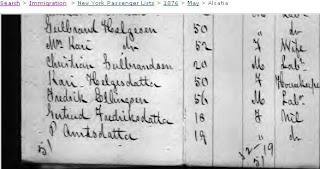 Search > Immigration > New York Passenger Lists > 1876 > May > Alsatia
Gulbrand Helgesen 50 " do
Mrs Kari do 52 F Wife
Christian Gulbrandsen 20 M Labr
Kari Helgesdatta 50 F Housekeeper
Fredrik Ellingsen 56 M Labr
Gertrud Fredriksdatta 18 F Nil
P Arntsdatta 19 " do
51 32-19
51